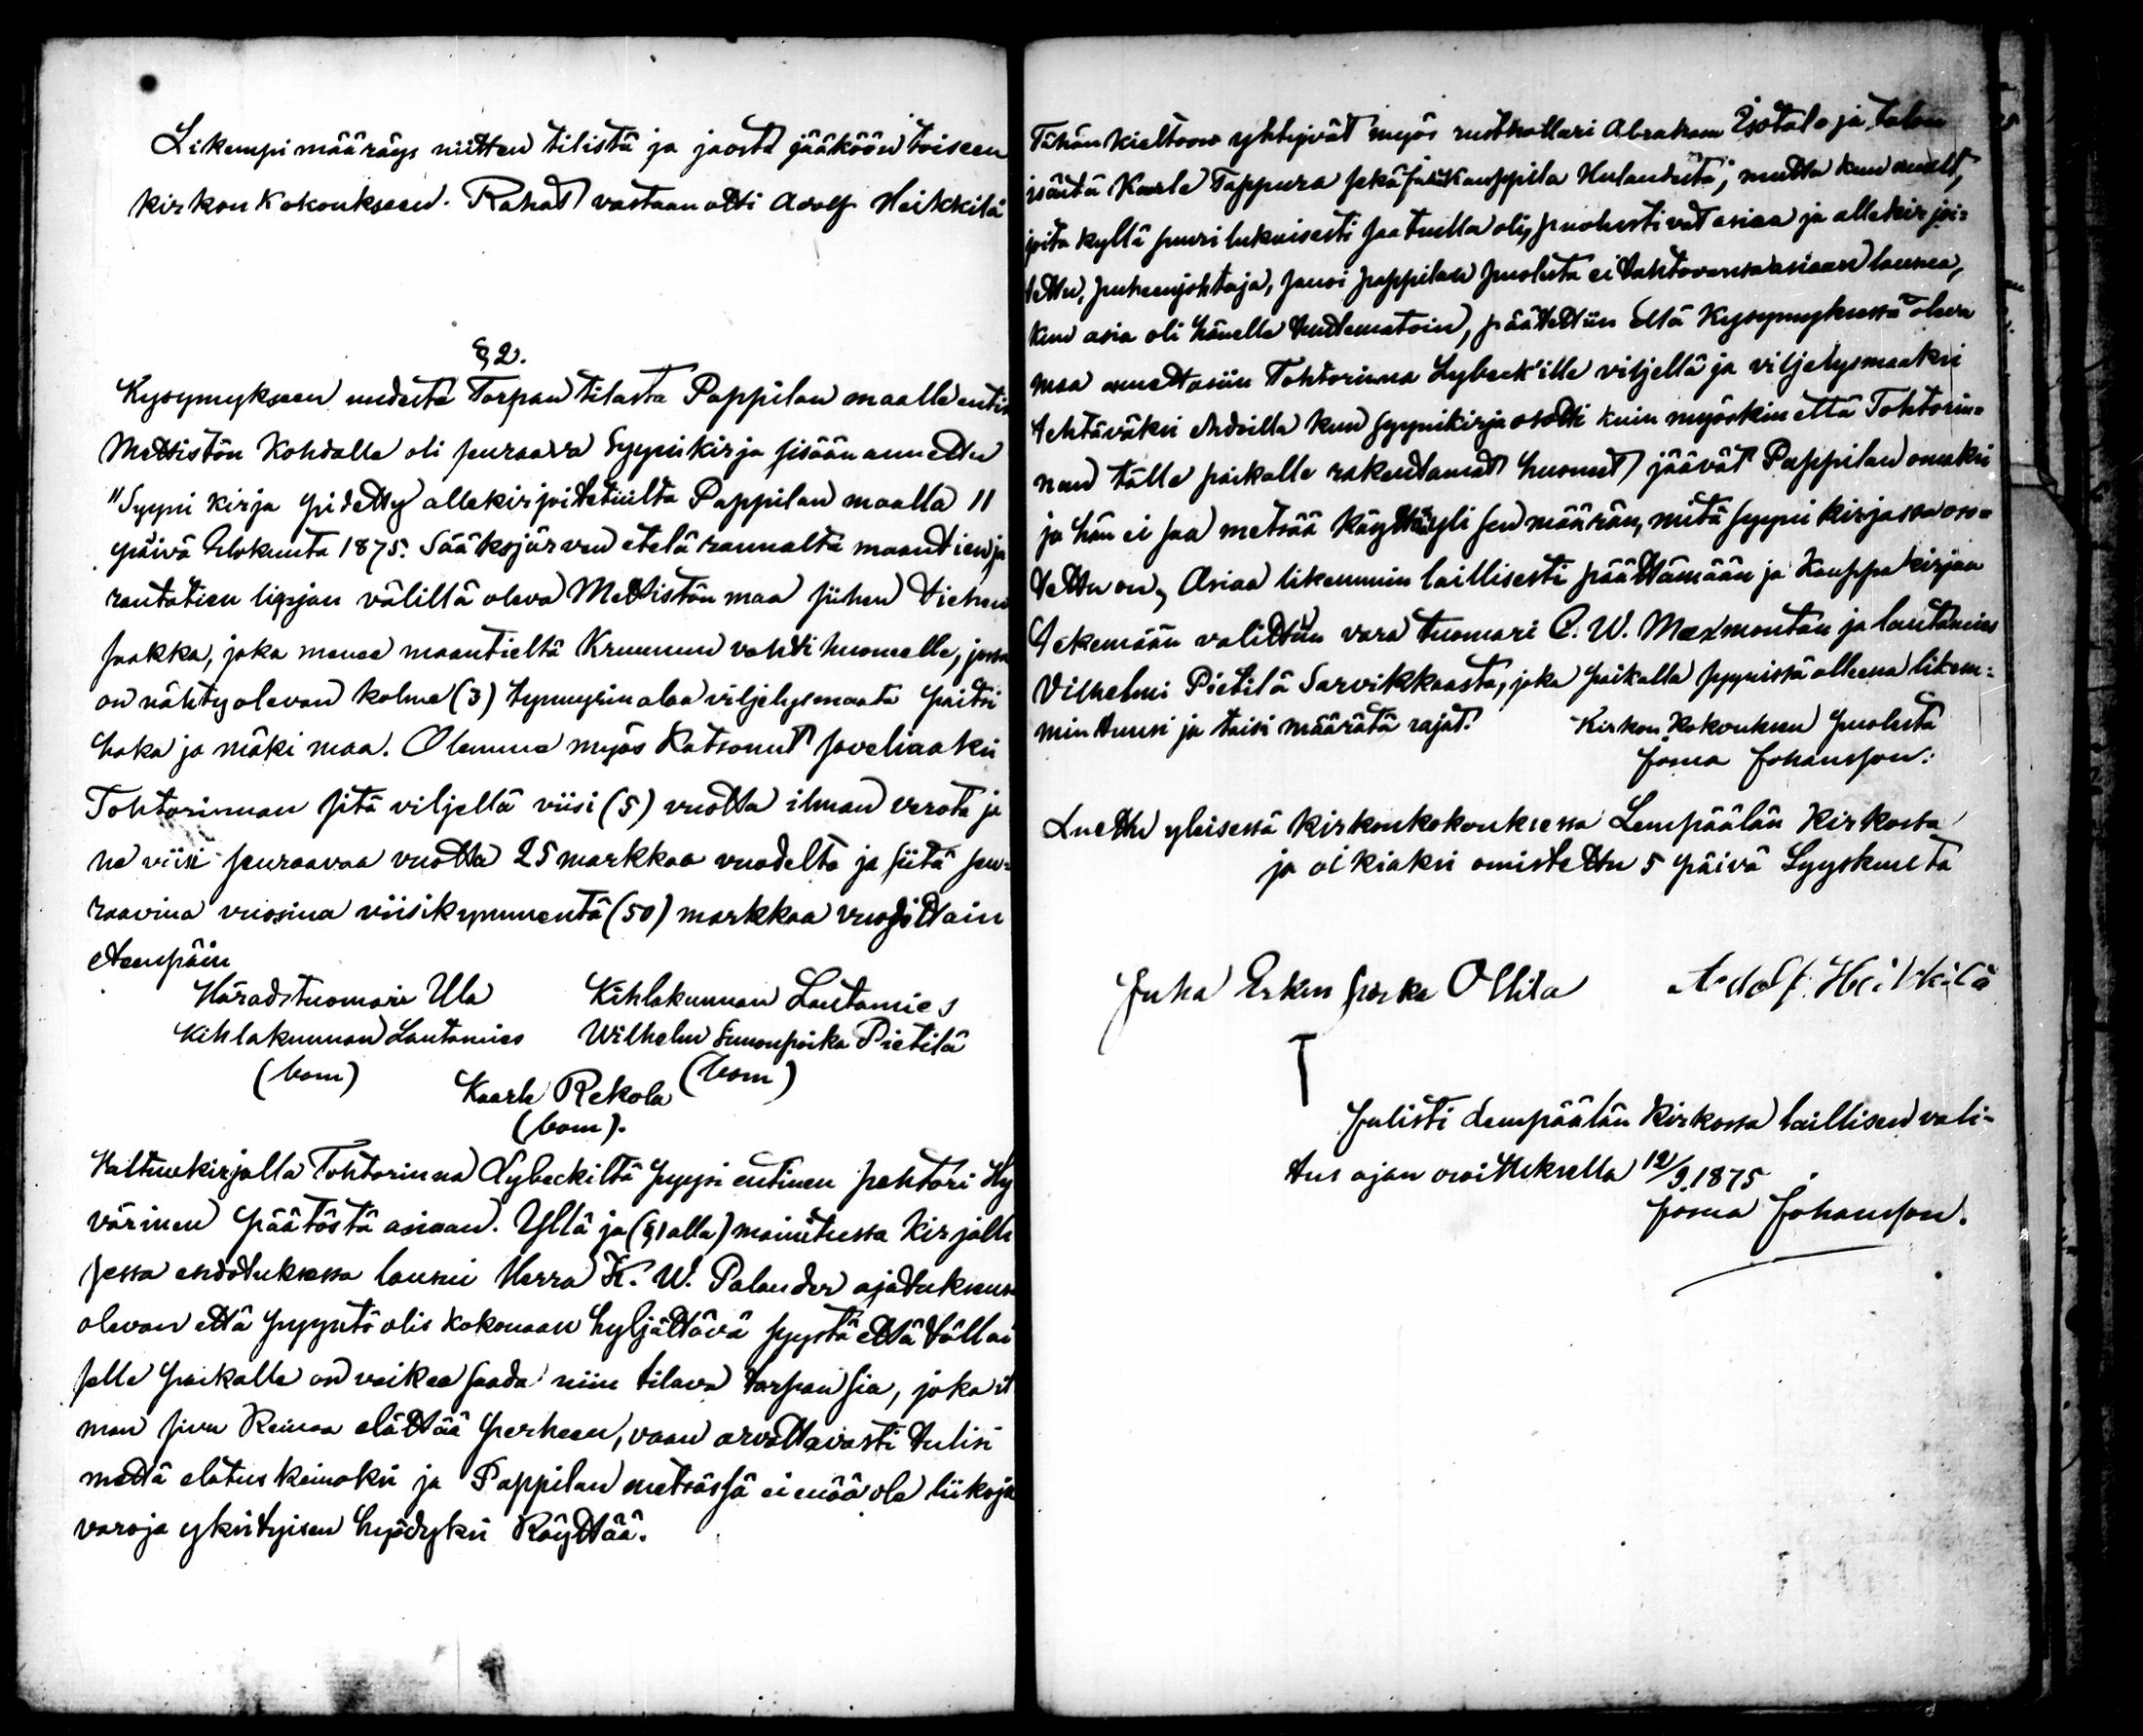 Likempi määräys niitten tilistä ja jaosta jääköön toiseen
kirkon kokoukseen. Rahat vastaan otti Adolf Heikkilä
§ 2.
Kysymykseen uudesta Torpan tilasta Pappilan maalle entis
Mettistön kohdalla oli seuraava Syynikirja sisään annettu
"Syyni kirja pidetty allekirjoitetuilta Pappilan maalla 11
päivä Elokuuta 1875. Sääksjärven etelä rannalta maantien ja
rantatien linjan välillä oleva Mettistön maa siihen tiehen
saakka, joka menee maantieltä Kruunun vahti huoneelle, jossa
on nähty olevan kolme (3) tynnyrin alaa viljelysmaata paitsi
haka ja mäki maa. Olemme myös katsonut soveliaaksi
Tohtorinnan sitä viljellä viisi (5) vuotta ilman verota ja
ne viisi seuraavaa vuotta 25 markkaa vuodelta ja siitä seu-
raavina vuosina viisikymmentä (50) markkaa vuosittain
eteenpäin
Häradstuomari Ula Kihlakunnan Lautamies
Kihlakunnan Lautamies Wilhelm Simonpoika Pietilä
(bom) (bom)
Kaarle Rekola
(bom).
Valtuukirjalla Tohtorinna Lybeckiltä pyysi entinen pehtori Hy
värinen päätöstä asiaan. Yllä ja (§1 alla) mainitussa kirjalli
sessa ehdotuksessa lausui Herra K. W. Palander ajatuksensa
olevan että pyyntö olis kokonaan hyljättävä syystä että tällai
selle paikalle on vaikea saada niin tilava torpan sia, joka il
man sivu keinoa elättää perheen, vaan arvattavasti tulisi
mettä elatus keinoksi ja Pappilan metsässä ei enää ole liikoja
varoja yksityisen hyödyksi käyttää.
Tähän kieltoon yhtyivät myös rusthollari Abraham Isotalo ja talon
isäntä Kaarle Tappura sekä Kauppila Hulaudesta; mutta kun muut,
joita kyllä suuri lukuisesti saatuilla oli, puolustivat asiaa ja allekirjoi-
tettu, puheenjohtaja, sanoi pappilan puolesta ei tahtovansa asiaan lausua,
kun asia oli hänelle tuntematoin, päätettiin että kysymyksessä oleva
maa annettasiin Tohtorinna Lybeck'ille viljellä ja viljelysmaaksi
tehtäväksi ehdoilla kun syynikirja osotti kuin myöskin että Tohtorin-
nan tälle paikalle rakentamat huoneet jäävät Pappilan omaksi
ja hän ei saa metsää käyttää yli sen määrän, mitä syyni kirjassa oso-
tettu on, Asiaa likemmin laillisesti päättämään ja Kauppa kirjaa
tekemään valittiin vara tuomari C. W. Maxmontan ja lautamies
Vilhelmi Pietilä Sarvikkaasta, joka paikalla syynissä olleena likem-
min tunsi ja taisi määrätä rajat. Kirkon Kokouksen puolesta
Josua Johansson.
Luettu yleisessä kirkonkokouksessa Lempäälän Kirkossa
ja oikiaksi omistettu 5 päivä Syyskuuta
Juha Erkin poika Ollila Adolf Heikkilä
Julisti Lempäälän kirkossa laillisen vali-
tus ajan osoituksella 12/9 1875
Josua Johansson.